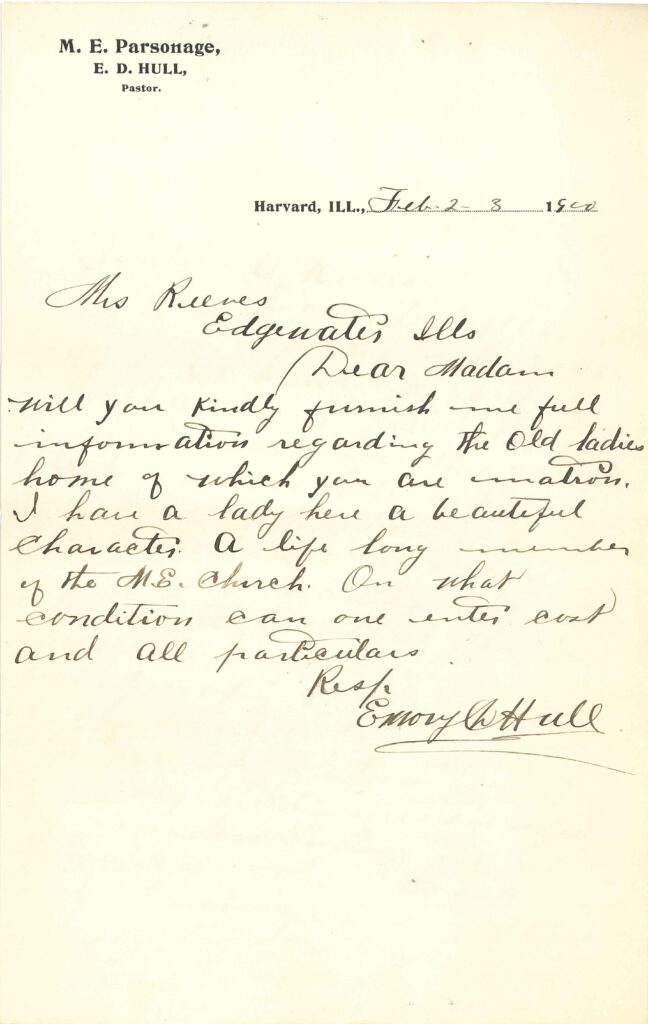 M. E. Parsonage,
E. D. HULL,
Pastor.
Harvard, ILL., Feb. 2-3 1900
Mrs Reeves
Edgewater Ills
Dear Madam
Will you kindly furnish me full
information regarding the Old ladies
home of which you are matron.
I have a lady here a beautiful
character. A life long member
of the M.E. Church. On what
condition can one enter cost
and all particulars
Resp
Emory D Hull